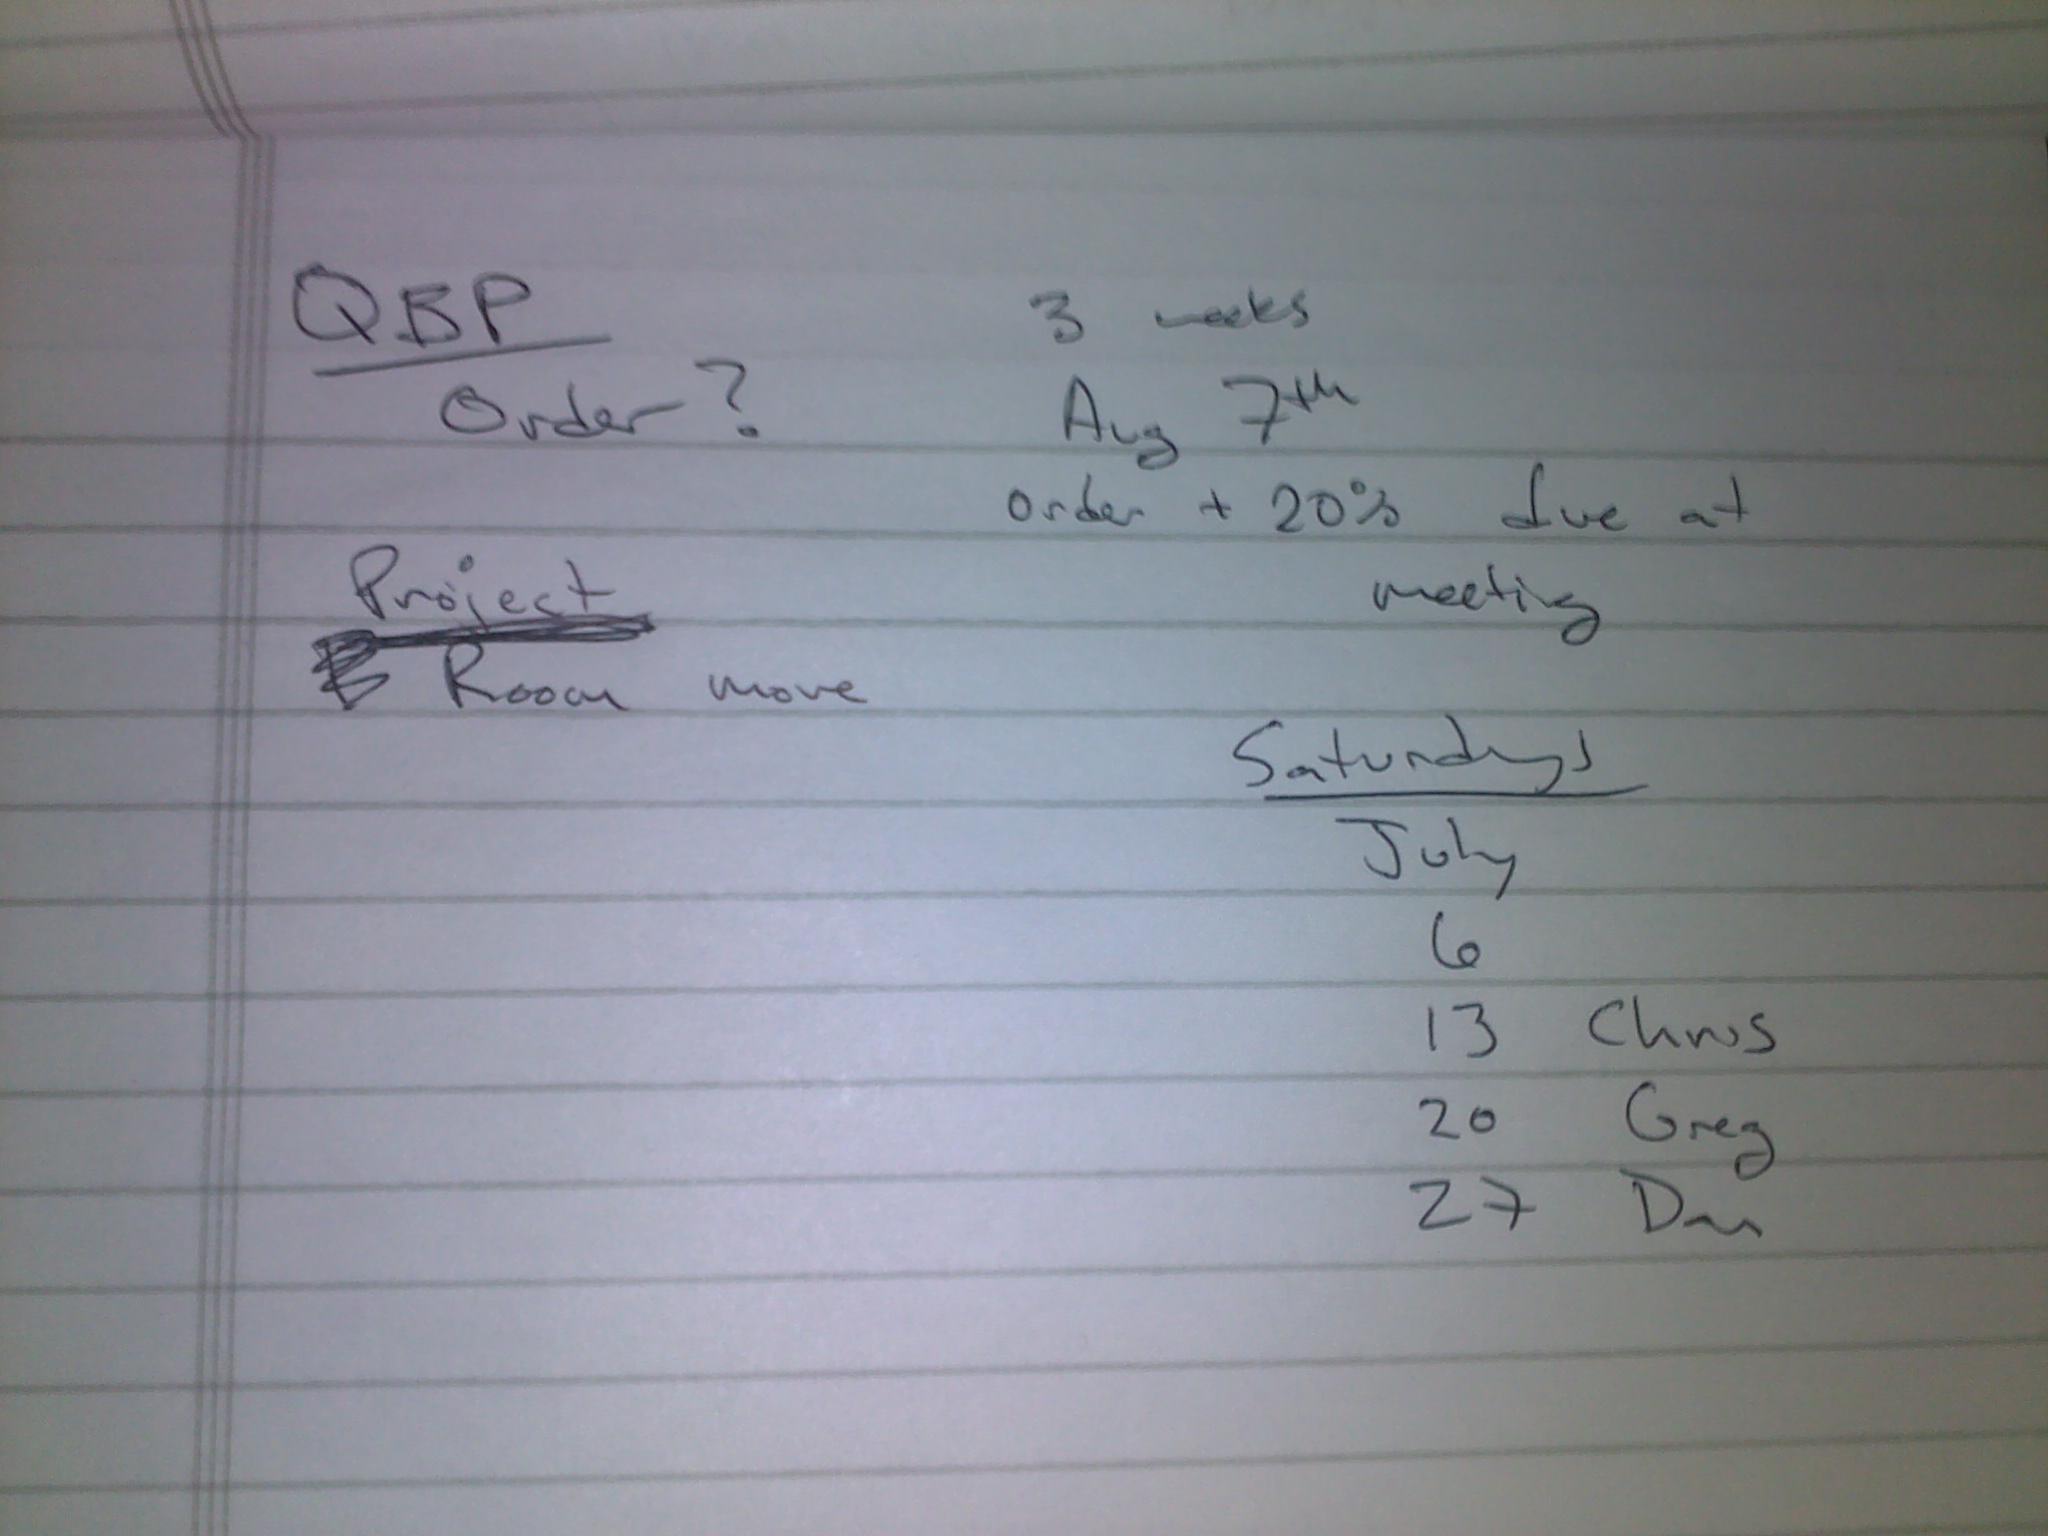 QBP
Order?
3 weeks
Aug 7th
order + 20% due at
meeting
Project
Room move
Saturdays
July
6
13 Chris
20 Greg
27 Dan